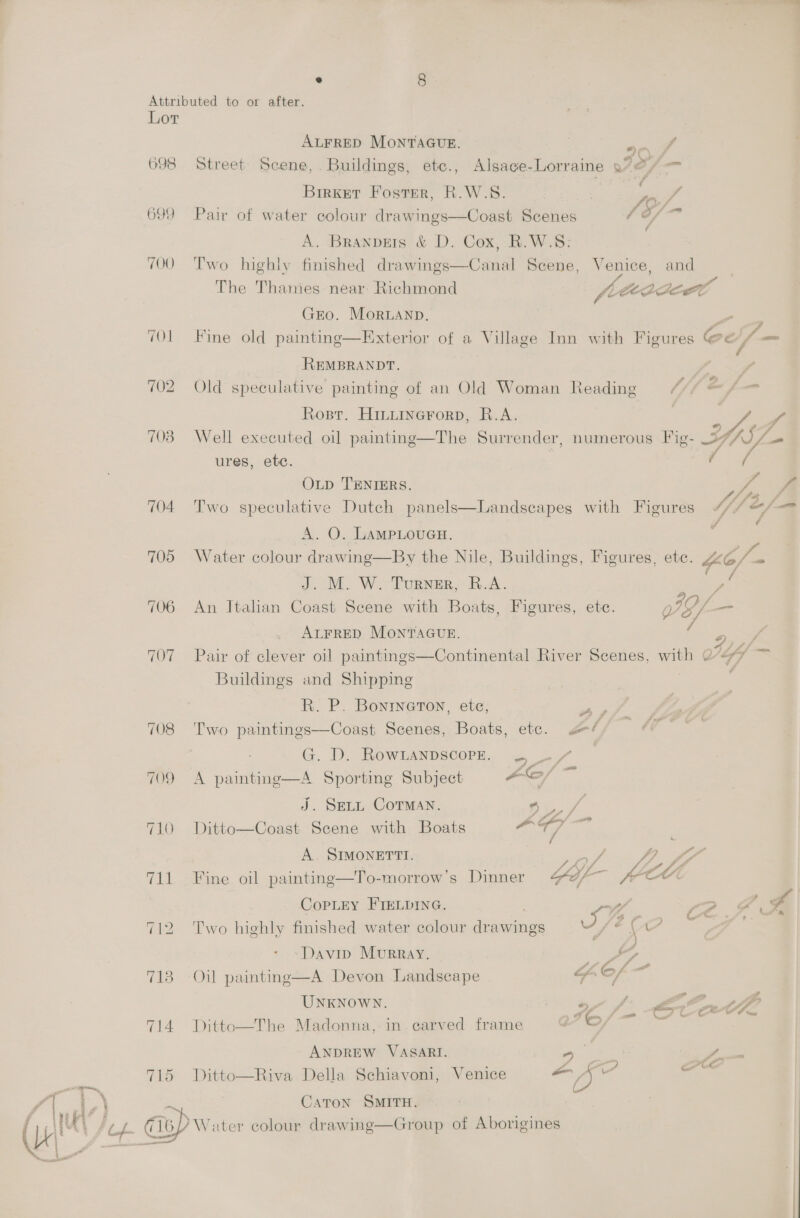 8
Attributed to or after.
Lot
ALFRED MONTAGUE.
698 Street Scene, Buildings, etc., Alsace-Lorraine
BIRKET FOSTER, R.W.S.
699 Pair of water colour drawings—Coast Scenes
A. BRANDEIS & D. COX, R.W.S.
700 Two highly finished drawings—Canal Scene, Venice, and
The Thames near Richmond
GEO. MORLAND.
701 Fine old painting—Exterior of a Village Inn with Figures
REMBRANDT.
702 Old speculative painting of an Old Woman Reading
ROBT. HILLINGFORD, R.A.
703 Well executed oil painting—The Surrender, numerous Fig-
ures, etc.
OLD TENIERS.
704 Two speculative Dutch panels—Landscapes with Figures
A. O. LAMPLOUGH.
705 Water colour drawing—By the Nile, Buildings, Figures, etc.
J. M. W. TURNER, R.A.
706 An Italian Coast Scene with Boats, Figures, etc.
ALFRED MONTAGUE.
707 Pair of clever oil paintings—Continental River Scenes, with
Buildings and Shipping
R. P. BONINGTON, etc,
708 Two paintings—Coast Scenes, Boats, etc.
G. D. ROWLANDSCOPE.
709 A painting—A Sporting Subject
J. SELL COTMAN.
710 Ditto—Coast Scene with Boats
A. SIMONETTI.
711 Fine oil painting—To-morrow's Dinner
COPLEY FIELDING.
712 Two highly finished water colour drawings
DAVID MURRAY.
713 Oil painting—A Devon Landscape
UNKNOWN.
714 Ditto—The Madonna, in carved frame
ANDREW VASARI.
715 Ditto—Riva Della Schiavoni, Venice
CATON SMITH.
716 Water colour drawing—Group of Aborigines